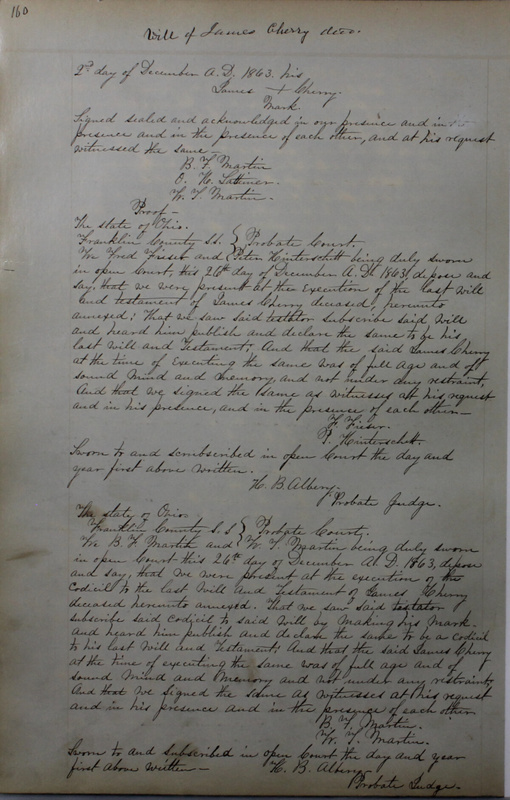 160
Will of James Cherry decd.
2d day of December A.D. 1863. his
James + Cherry.
Mark.
Signed sealed and acknowledged in our presence and in
presence and in the presence of each other, and at his request
witnessed the same—
B. F. Martin
O. H. Lattimer.
W. T. Martin.
Proof—
The state of Ohio.
Franklin County S.S. } Probate Court.
We Fred Fieser and Peter Hinterschitt being duly sworn
in open Court, this 26th day of December A.D. 1863, depose and
say, that we were present at the execution of the last will
and testament of James Cherry deceased, hereunto
annexed: That we saw said testator subscribe said will
and heard him publish and declare the same to be his
last will and Testament; And that the said James Cherry
at the time of executing the same was of full age and of
sound mind and memory and not under any restraint,
And that we signed the same as witnesses at his request
and in his presence, and in the presence of each other—
F. Fieser.
P. Hinterschitt.
Sworn to and scribscribed in open Court the day and
year first above written.
H. B. Albery.
Probate Judge.
The state of Ohio
Franklin County S.S } Probate Court.
We B. F. Martin and W. T. Martin being duly sworn
in open Court this 26th day of December A.D. 1863, depose
and say, that we were present at the execution of the
codicil to the last will and testament of James Cherry
deceased hereunto annexed. That we saw said testator
subscribe said codicil to said will by making his mark.
and heard him publish and declare the same to be a codicil
to his last will and testament: And that the said James Cherry
at the time of executing the same was of full age and of
sound mind and memory and not under any restraint,
And that we signed the same as witnesses at his request
and in his presence and in the presence of each other
B. F. Martin.
W. T. Martin.
Sworn to and subscribed in open Court the day and year
first above written— H. B. Albery
Probate Judge.